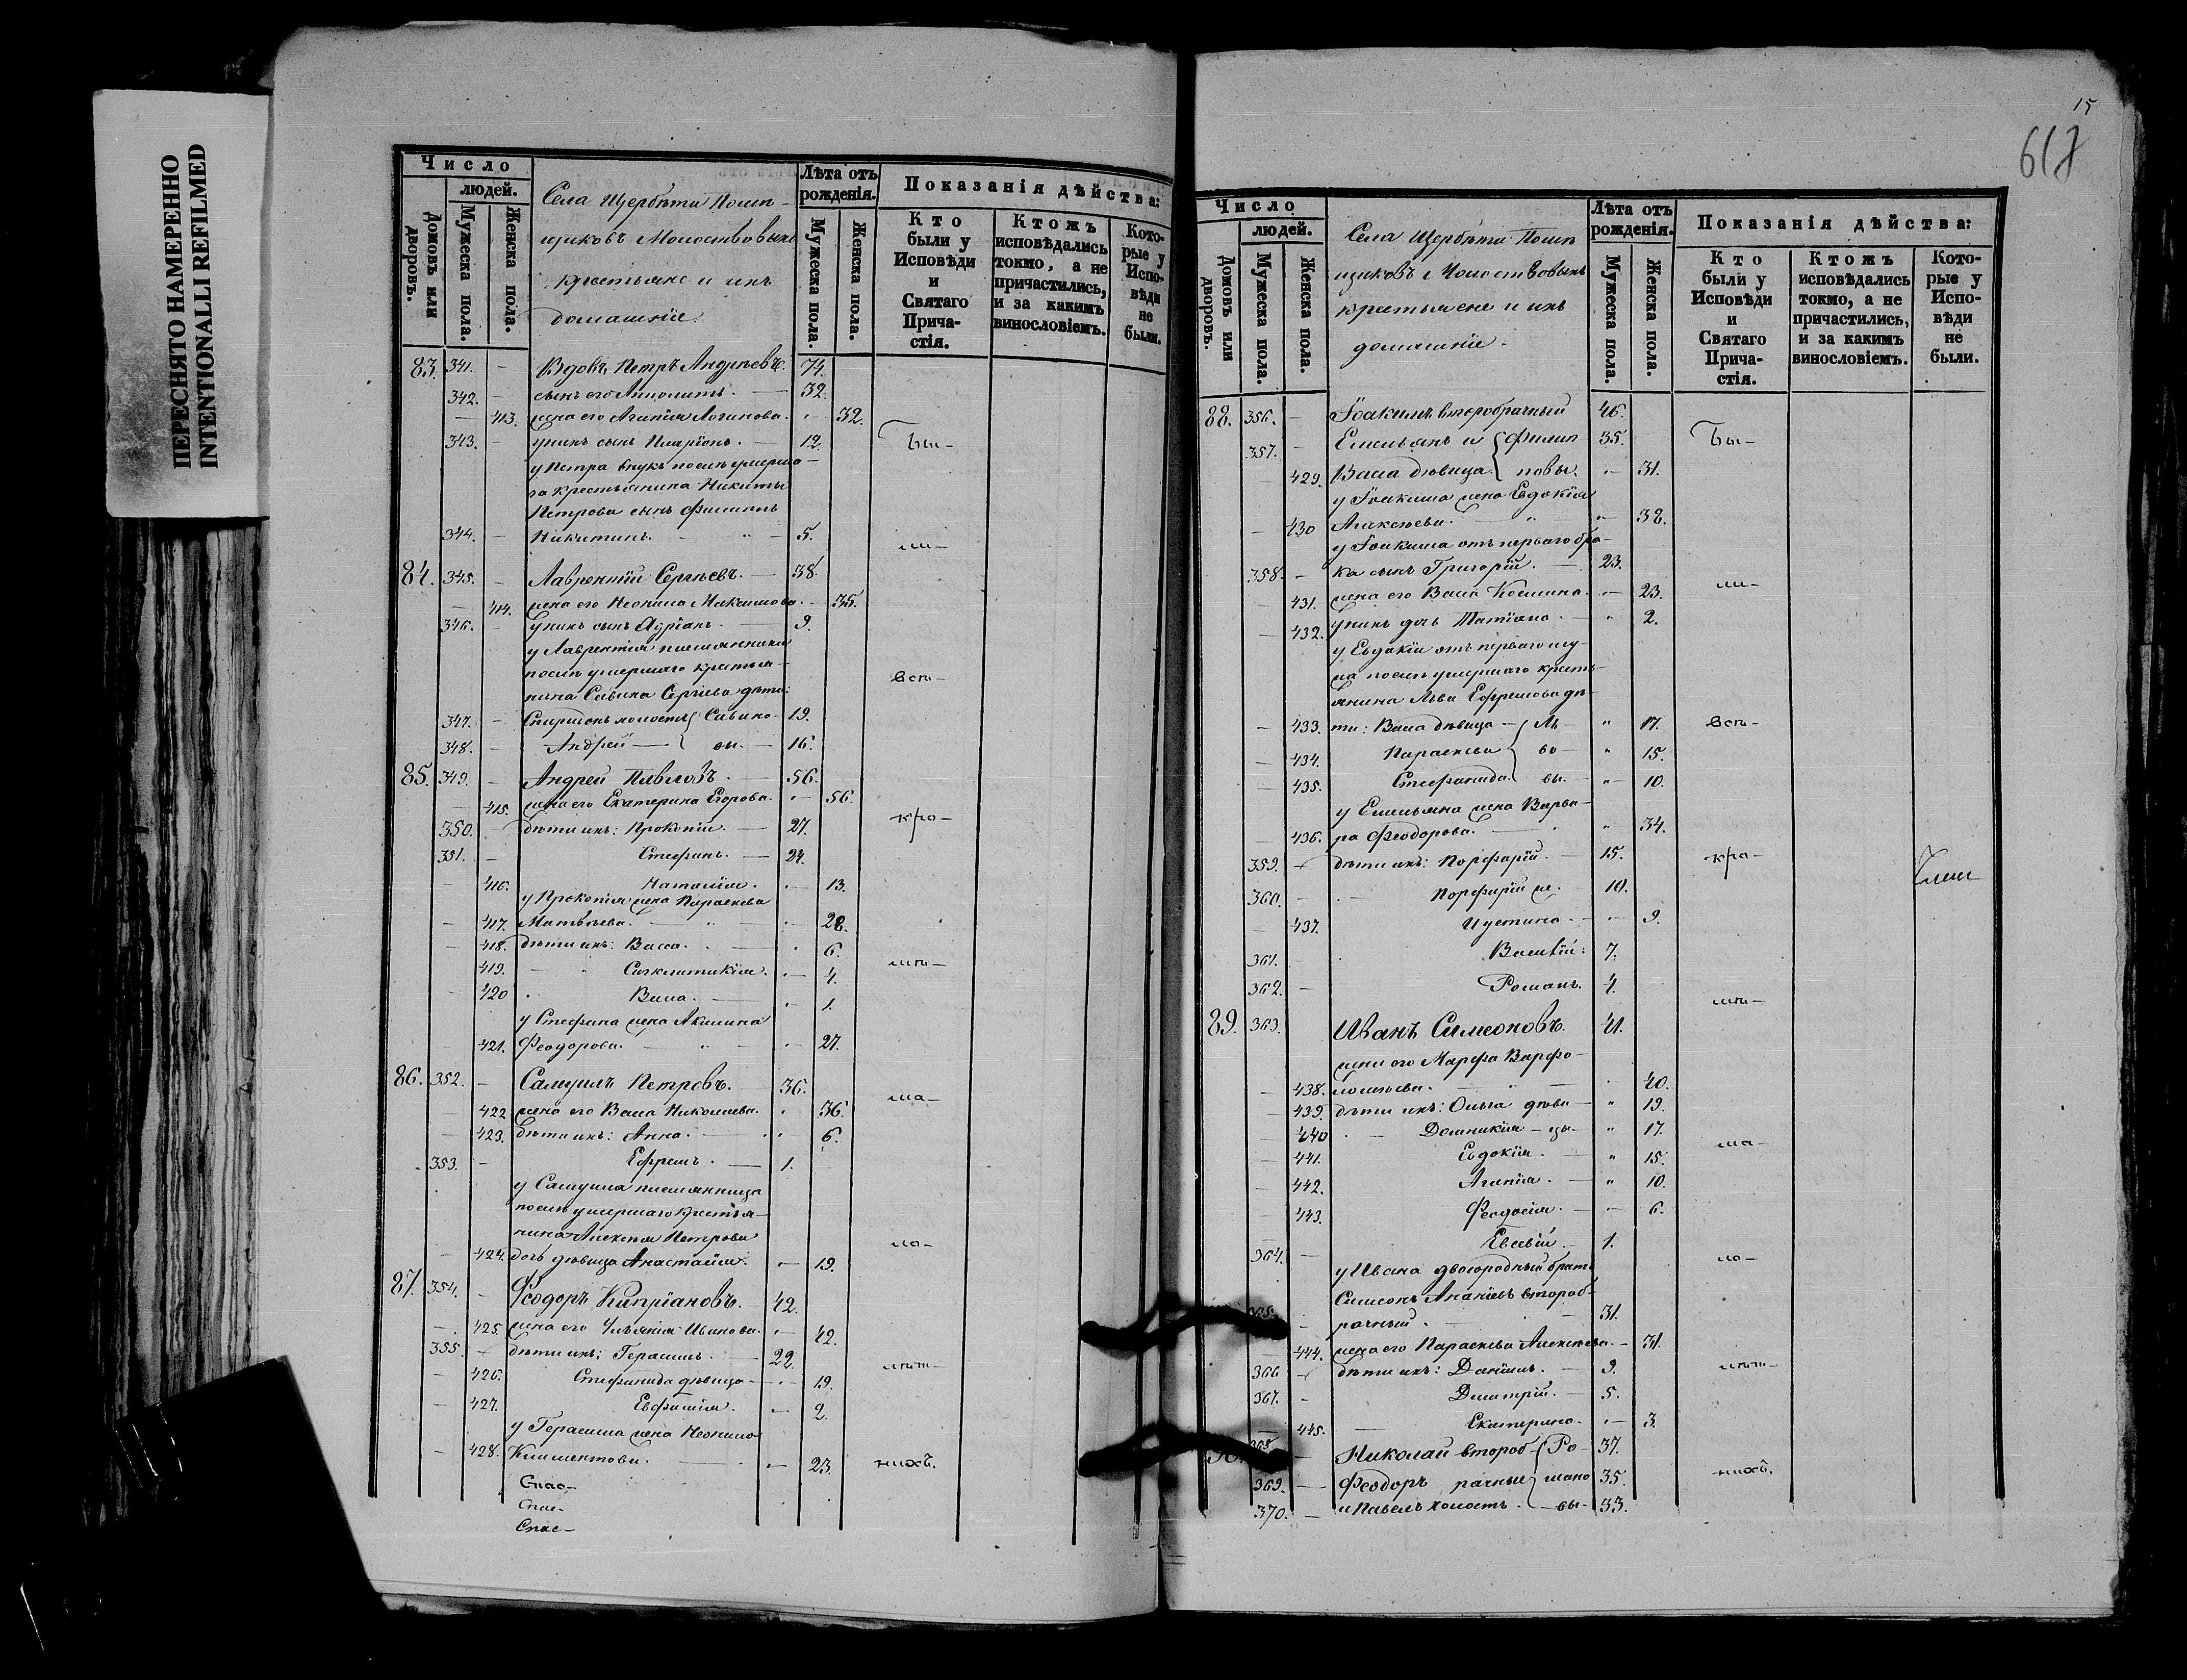 ПЕРЕСНЯТО НАМЕРЕННО
INTENTIONALLI REFILMED
Число
людей.
Домовъ или дворовъ.
Мужеска пола.
Женска пола.
Села Щербѣти Помѣ-
щиковъ Молоствовыхъ
крестьяне и ихъ
домашніе.
Лѣта отъ рожденія.
Мужеска пола.
Женска пола.
Показанія дѣйства:
Кто были у Исповѣди и Святаго Прича-стія.
Ктожъ исповѣдались токмо, а не причастились, и за какимъ винословіемъ.
Кото-рые у Испо-вѣди не были.
83. 341. - Вдовъ Петръ Андреевъ. 74.
342. - сынъ его Ипполитъ. - 32.
- 413. жена его Агапія Логинова. - 32.
343. - у нихъ сынъ Иларіонъ. - 12. Бы-
у Петра внукъ послѣ умерша-
го крестьянина Никиты
Петрова сынъ Филиппъ
344. - Никитинъ. - 5. ли-
84. 345. - Лаврентій Сергѣевъ. - 38.
- 414. жена его Неонила Максимова. - 35.
346. - у нихъ сынъ Адріанъ. - 9.
у Лаврентія племянники
послѣ умершаго крестья-
нина Савина Сергіева дѣти: всѣ-
347. - Спиридонъ холостъ { Савино- 19.
348. - Андрей - { вы. - 16.
85. 349. - Андрей Павловъ. - 56.
- 415. жена его Екатерина Егорова. - 56.
350. - дѣти ихъ: Прокопій. - 27. кро-
351. - Стефанъ. - 24.
- 416. Наталія. - 13.
у Прокопія жена Параскева
- 417. Матвѣева. - 28.
- 418. дѣти ихъ: Васса. - 6.
419. - Синклитикія. - 4. мѣ-
- 420 Васа. - 1.
у Стефана жена Акилина
421. Феодорова. - 27.
86. 352. - Самуилъ Петровъ. 36.
- 422 жена его Васа Николаева. 36. ма-
- 423. дѣти ихъ: Анна. - 6.
353. - Ефремъ. - 1.
у Самуила племянница
послѣ умершаго крестья-
нина Алексѣя Петрова ло-
- 424. дочь дѣвица Анастасія. - 19.
87. 354. - Феодоръ Кипріановъ. 42.
- 425. жена его Ульянія Иванова. - 42.
355. - дѣти ихъ: Герасимъ. - 22.
- 426. Стефанида дѣвица - 19. лѣт-
- 427. Евфимія. - 2.
у Герасима жена Неонила
- 428. Климентова. - 23. нихъ.
Спас-
Спас-
Спас-
15
617
Число
людей.
Домовъ или дворовъ.
Мужеска пола.
Женска пола.
Села Щербѣти Помѣ
щиковъ Молоствовыхъ
крестьяне и ихъ
домашніе.
Лѣта отъ рожденія.
Мужеска пола.
Женска пола.
Показанія дѣйства:
Кто были у Исповѣди и Святаго Прича-стія.
Ктожъ исповѣдались токмо, а не причастились, и за какимъ винословіемъ.
Кото-рые у Испо-вѣди не были.
88. 356. - Іоакимъ второбрачный 46.
357. - Емельянъ и { Филип 35. Бы-
- 429. Васа дѣвица { повы. - 31.
у Іоакима жена Евдокія
- 430 Алексѣева. - 38.
у Іоакима отъ перваго бра-
358. - ка сынъ Григорій. - 23. ли-
431. жена его Васа Космина. - 23.
- 432. у нихъ дочь Татіана. - 2.
у Евдокіи отъ перваго му-
жа послѣ умершаго кресть-
янина Льва Ефремова дѣ-
- 433. ти: Васа дѣвица - { Ль- 17. всѣ-
- 434. Параскева { во - 15.
- 435. Стефанида { вы. - 10.
у Емельяна жена Варва-
- 436. ра Феодорова. - 34.
359. - дѣти ихъ: Порфирій. - 15. кро-
360. - Порфирій же. - 10.
- 437. Иустина. - 9.
361. Василій. 7.
362. - Романъ. 4. мѣ-
89. 363. Иванъ Симеоновъ. 41.
жена его Марфа Варфо-
- 438. ломеева. - 40.
- 439. дѣти ихъ: Ольга дѣви- 19.
- 440 Домникія - цы. 17. ма-
- 441. Евдокія. - 15.
- 442. Агапія. - 10.
- 443. Феодосія. - 6.
364. - Евсевій. - 1. ло-
у Ивана двоюродный братъ
Симеонъ Ананіевъ второб-
365. рачный. - 31.
- 444. жена его Параскева Алексѣева. - 31.
366 - дѣти ихъ: Даніилъ. - 9. лѣт-
367. - Димитрій. - 5.
- 445. Екатерина. - 3.
90. 368. - Николай второб- { Ро- 37.
369. - Феодоръ рачные { мано 35. нихъ.
370. - и Павелъ холостъ. { -вы. 33.